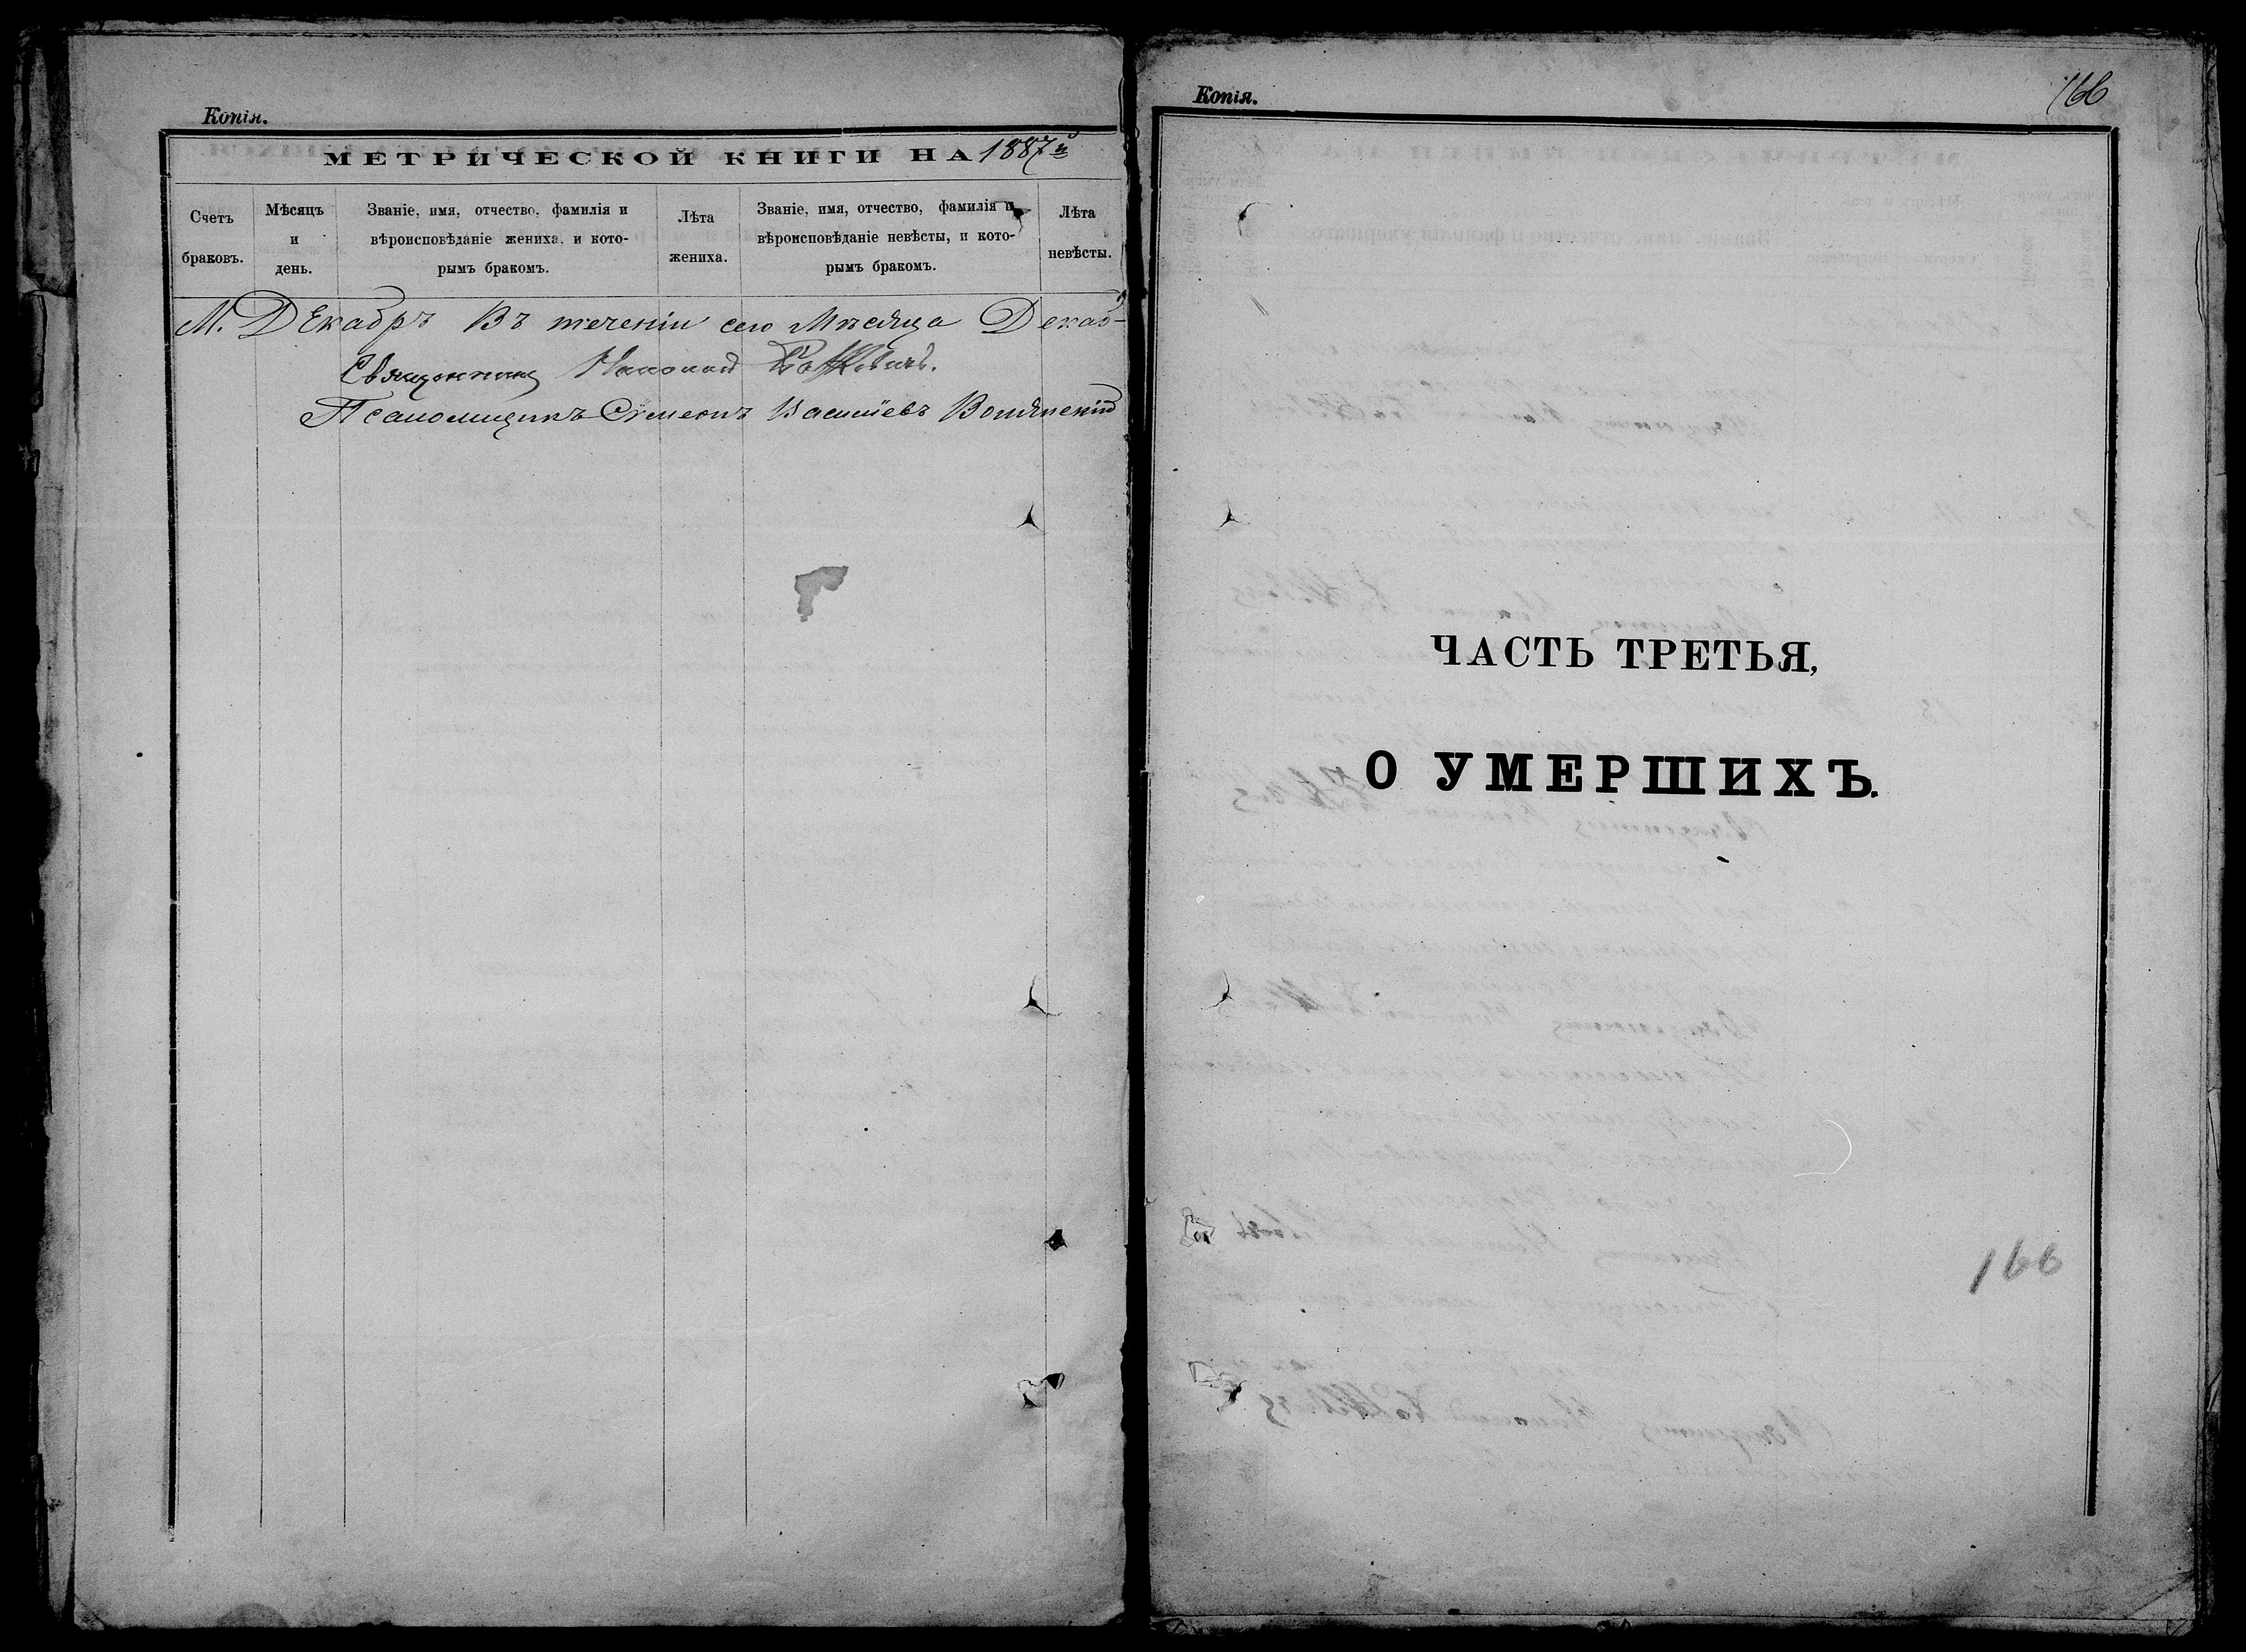 Копія.
МЕТРИЧЕСКОЙ КНИГИ НА 1887й
Счетъ браковъ.
Мѣсяцъ и день.
Званіе, имя, отчество, фамилія и
вѣроисповѣданіе жениха, и кото-
рымъ бракомъ.
Лѣта жениха.
Званіе, имя, отчество, фамилія и
вѣроисповѣданіе невѣсты, и кото-
рымъ бракомъ.
Лѣта невѣсты.
М. Декабрь Въ теченіи сего Мѣсяца Декаб-
Священникъ
Псаломщикъ Симеонъ Васильевъ
Копія.
166
ЧАСТЬ ТРЕТЬЯ,
О УМЕРШИХЪ.
166